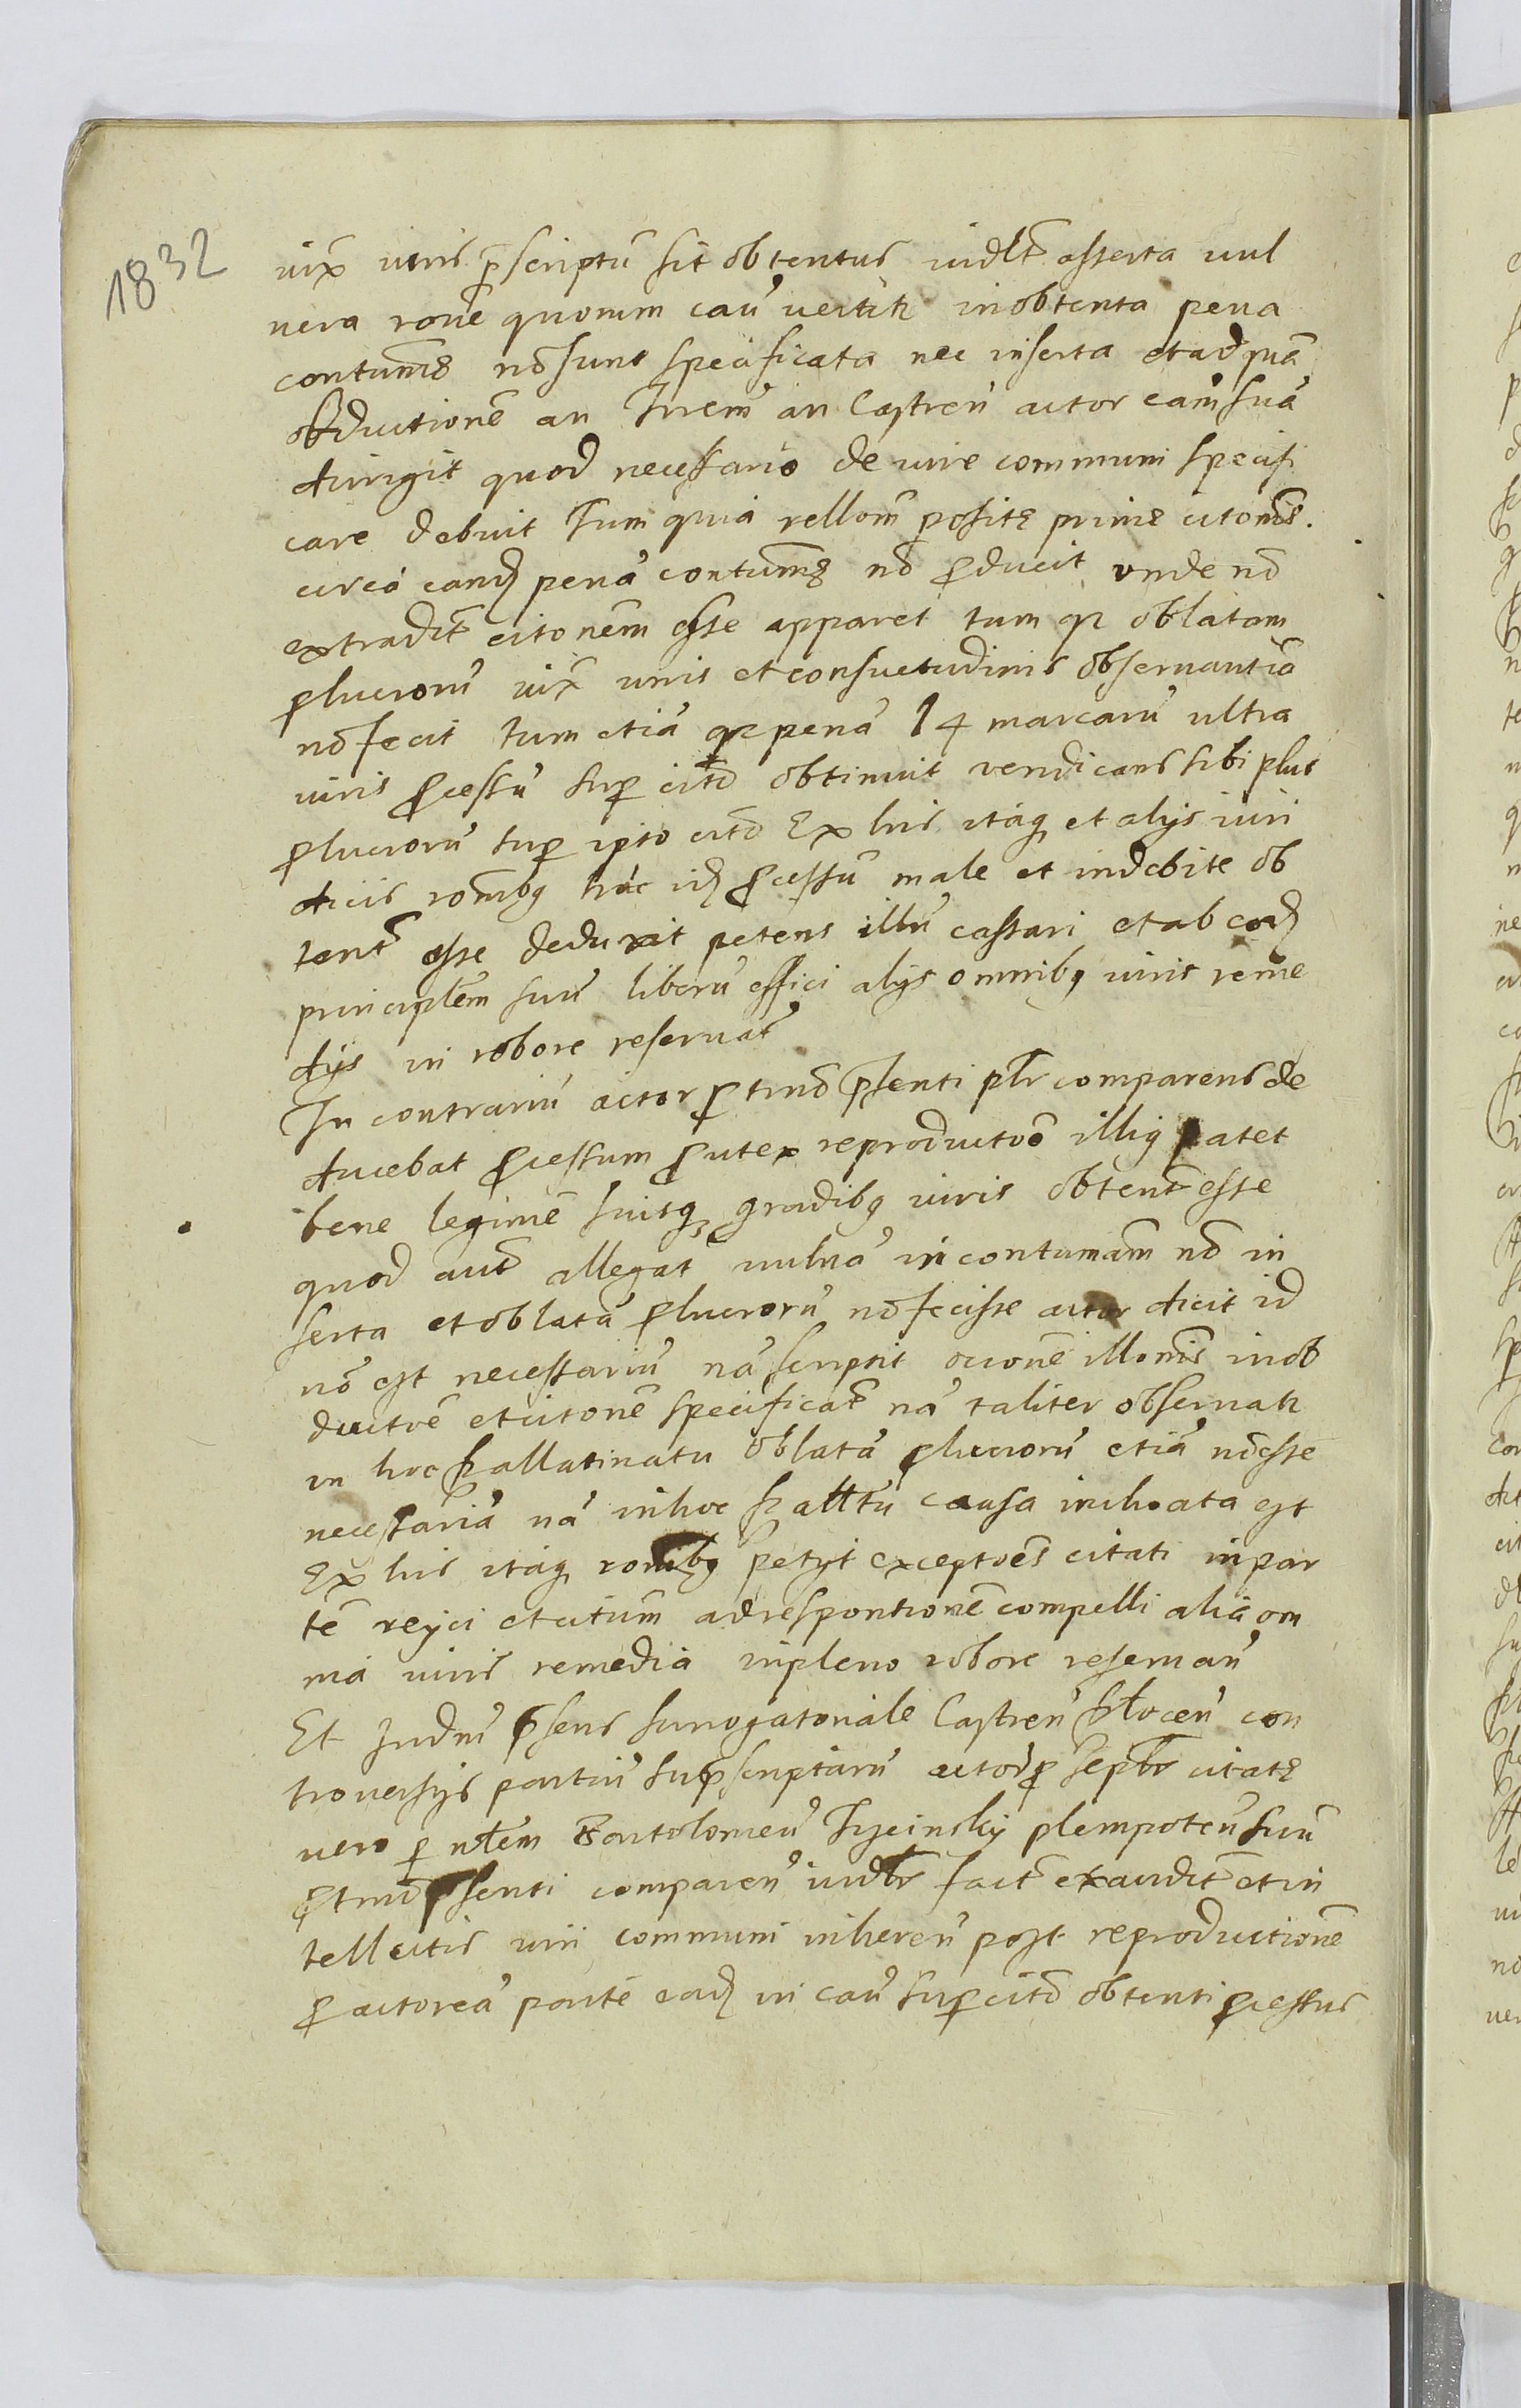 1832
iux̃ iuris p̄scriptũ sit obtentus vidlt̃ asserta vul
nera rone quorum cau' vertitr in obtenta pena
contumẽ nõ sunt specificata nec inserta et ad quẽ
obductionẽ an Trrem' an Castren' actor caũsuã
dirigit quod necessario de iure communi specifi
care debuit Tum quia rellom̃ positę primę citonĩs.
circa eand pena' contumẽ nõ producit vnde nõ
extradit̃ citonẽm esse apparet tum qr oblatam
plucroru' iux̃ iuris et consuetudinis obseruantiã
nõ fecit tum etia' qr pena' 14 marcaru' ultra
iuris processu' sup citõ obtinuit vendicans sibi plus
plucroru' sup ipso citõ Ex his itaq et alijs iuri
dicis ronibq huc id processũ male et indebite ob
tent̃ esse deduxit petens illũ cassari et ab eod
principlẽm suũ liberũ effici alijs omnibq iuris reme
dijs in robore reseruat̃
In contrariũ actor p tmõ p̄senti pl̃r comparens de
ducebat processum prout ex reproductõe illiq patet
bene legimẽ suisq gradibq iuris obtent̃ esse
quod aut̃ allegat vulna' in contumam̃ nõ in
serta et oblata' plucrorũ nõ fecisse actor dicit id
nõ est necessariũ nã scripsit ocionẽ illonĩs in ob
ductõe et citonẽ specificat̃ na' taliter obseruatr
in hoc Pallatinatu oblata' plucrorũ etia' nõ esse
necessaria' na' in hoc Palltũ causa inchoata est
Ex his itaq ronibq petijt exceptões citati in par
tẽ rejici et citum̃ ad responsionẽ compelli alia om
nia iuris remedia in pleno robore reseruan'
Et Iudm̃ p̄sens surrogatoriale Castren' Plocen' con
trouersijs partiũ suprscriptarũ actoris p se pl̃r citatę
uero p nlt̃em Bartolomeũ plempoten' suũ
p tmõ p̄senti comparen' iudlr̃ fact̃ exaudit̃ et in
tellectis iuri communi inheren' post reproductionẽ
p actorea' partẽ ead in cau' sup citõ obtenti processus